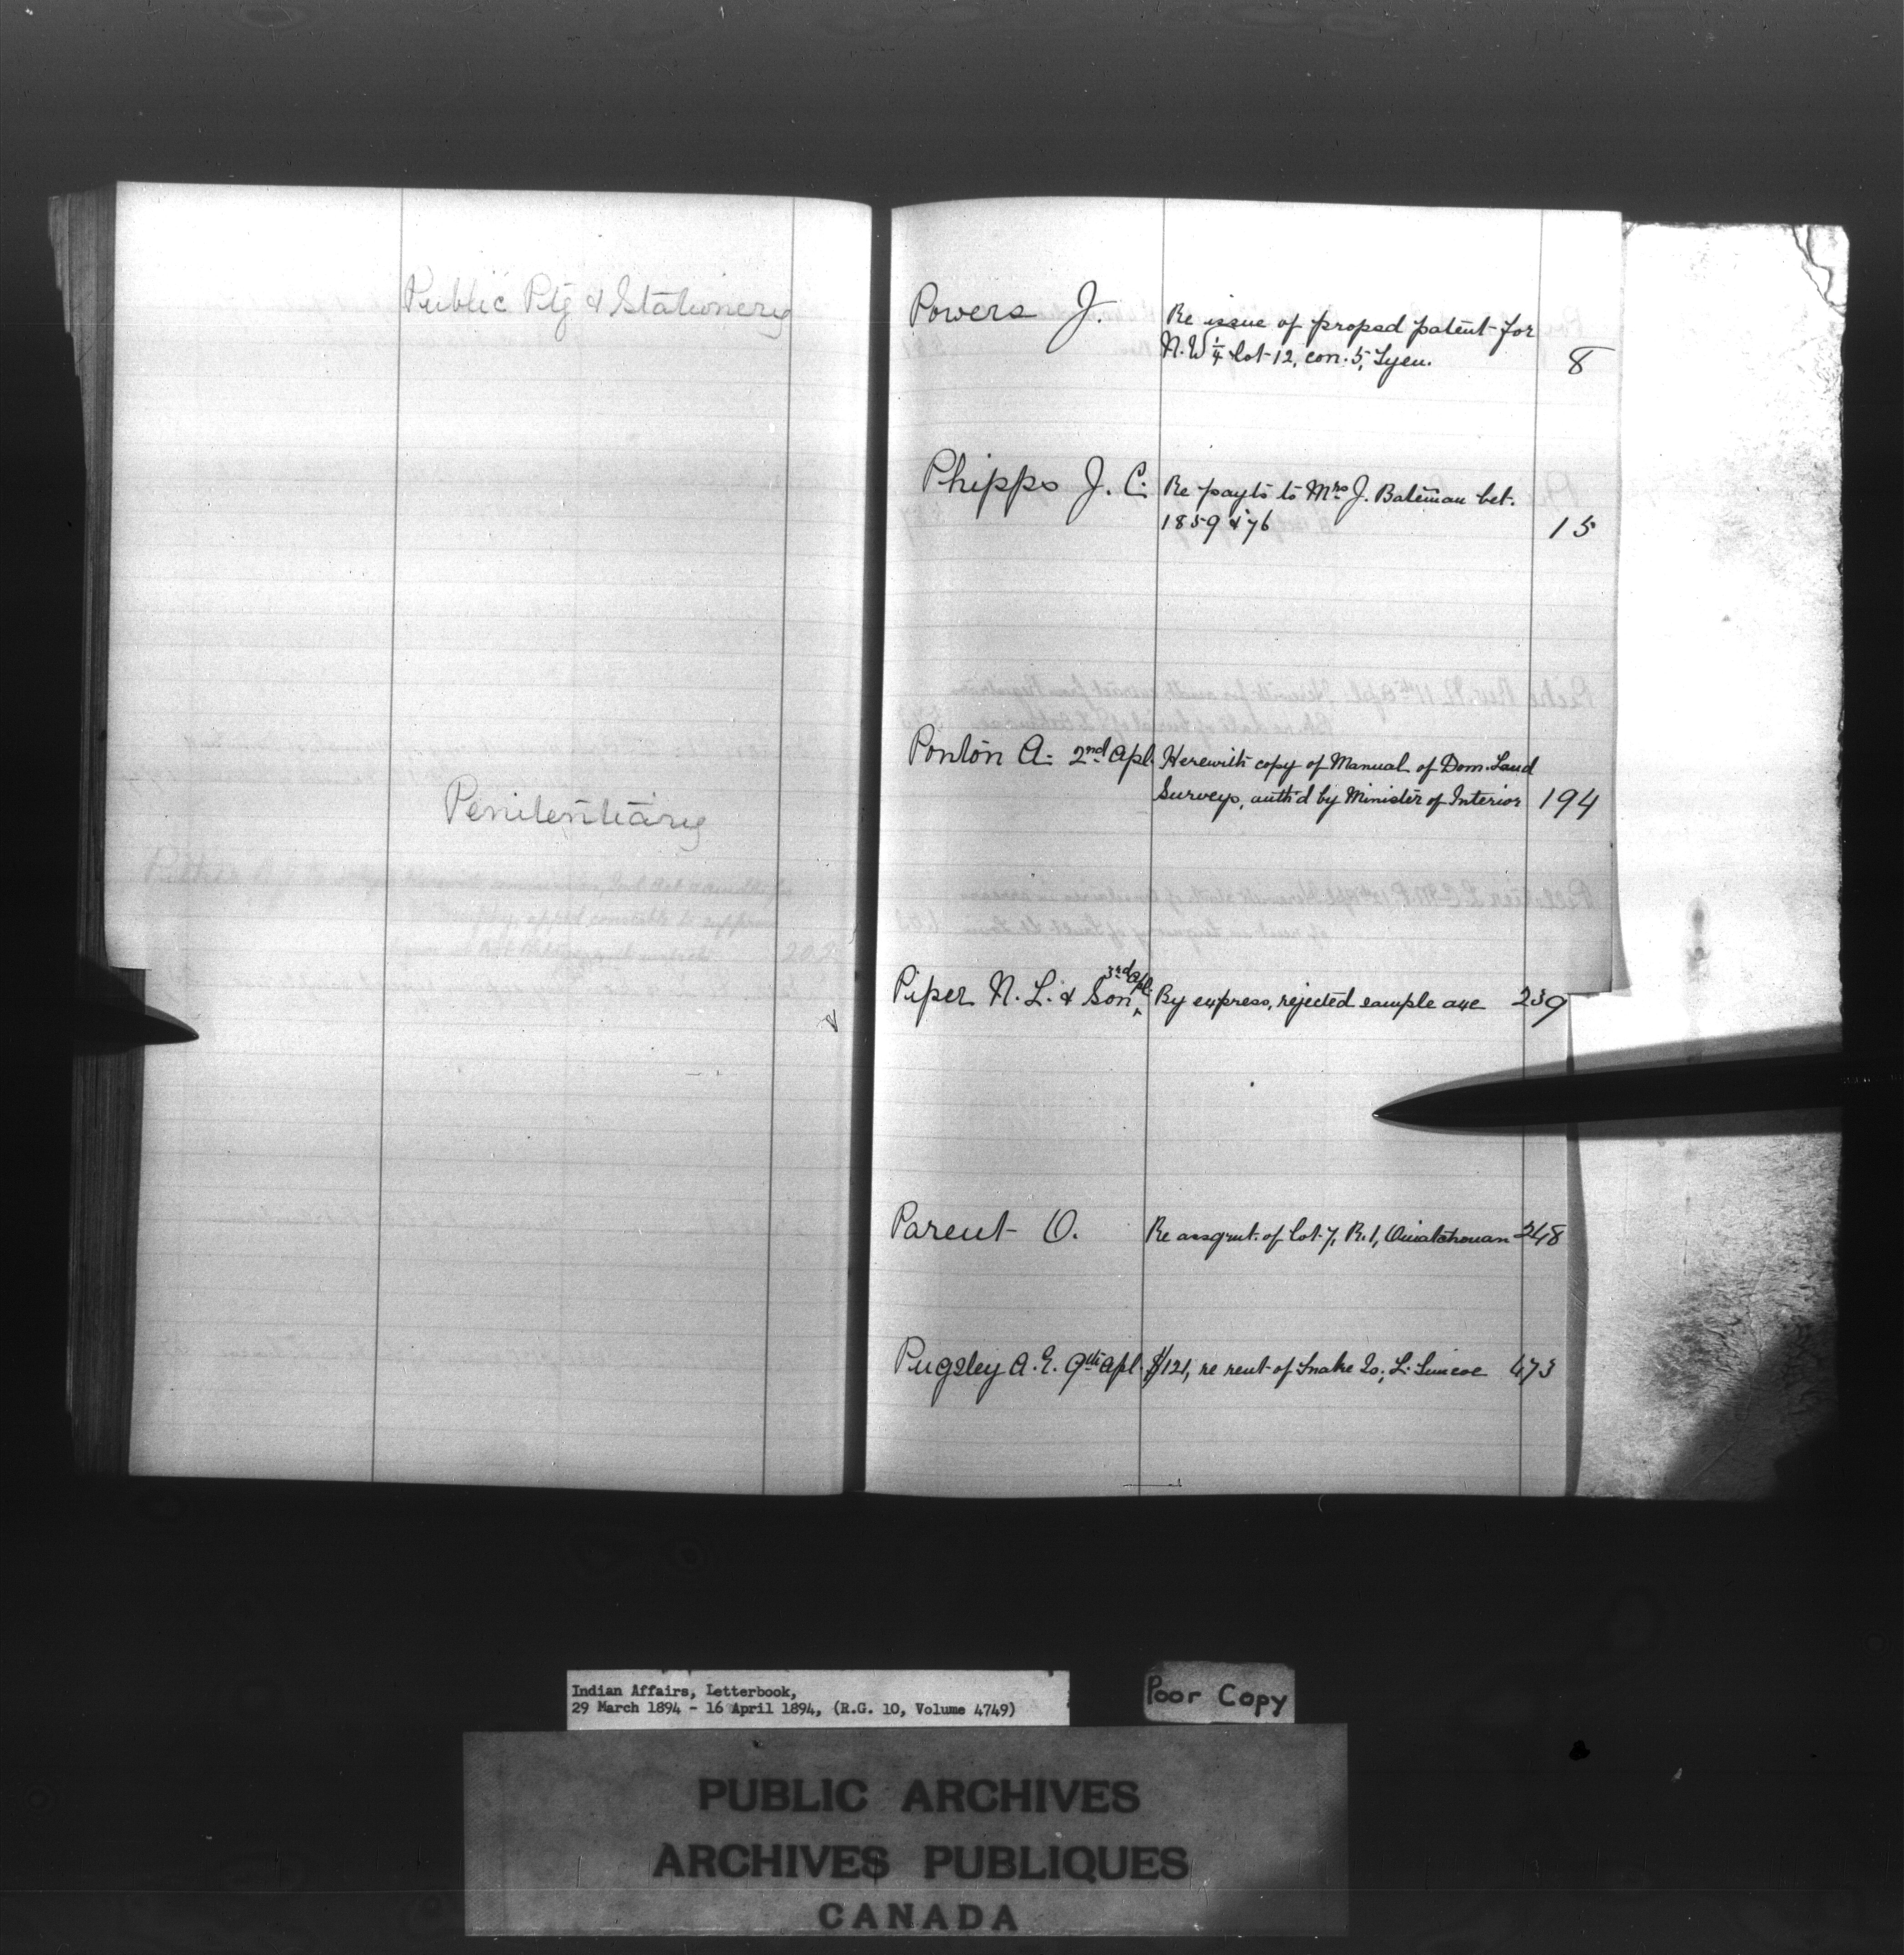 Public Ptg & Stationery
Penitentiary
202
Powers J.
Re issue of propsd patent for
N.W ¼ lot 12, con. 5, Tyen.
8
Phipps J. C.
Re payts to Mrs J. Bateman bet.
1859 & 76
15
Ponton A. 2nd Apl.
Herewith copy of Manual of Dom. Land
Surveys, auth'd by Minister of Interior
194
3rd Apl.
Piper N. L. & Son
By express, rejected sample axe
239
Parent O.
Re assgmt. of lot 7, R. 1, Ouiatchouan
248
Pugsley A. E. 9th Apl.
$121, re rent of Snake Is., L. Simcoe
473
Indian Affairs, Letterbook,
29 March 1894 - 16 April 1894, (R.G. 10, Volume 4749)
Poor Copy
PUBLIC ARCHIVES
ARCHIVES PUBLIQUES
CANADA